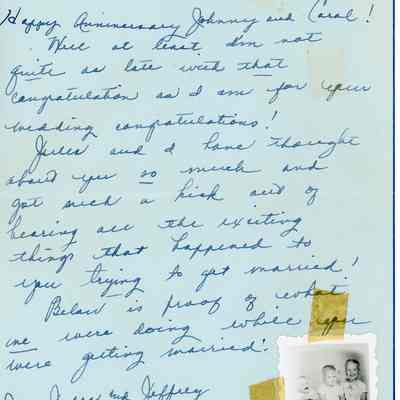 Happy Anniversary Johnny and Carol!
Well at least I'm not
quite as late with that
congratulation as I am for your
wedding congratulations!
Jules and I have thought
about you so much and
got such a kick out of
hearing all the exciting
things that happened to
you trying to get married!
Below is proof of what
we were doing while you
were getting married!
and Jeffrey